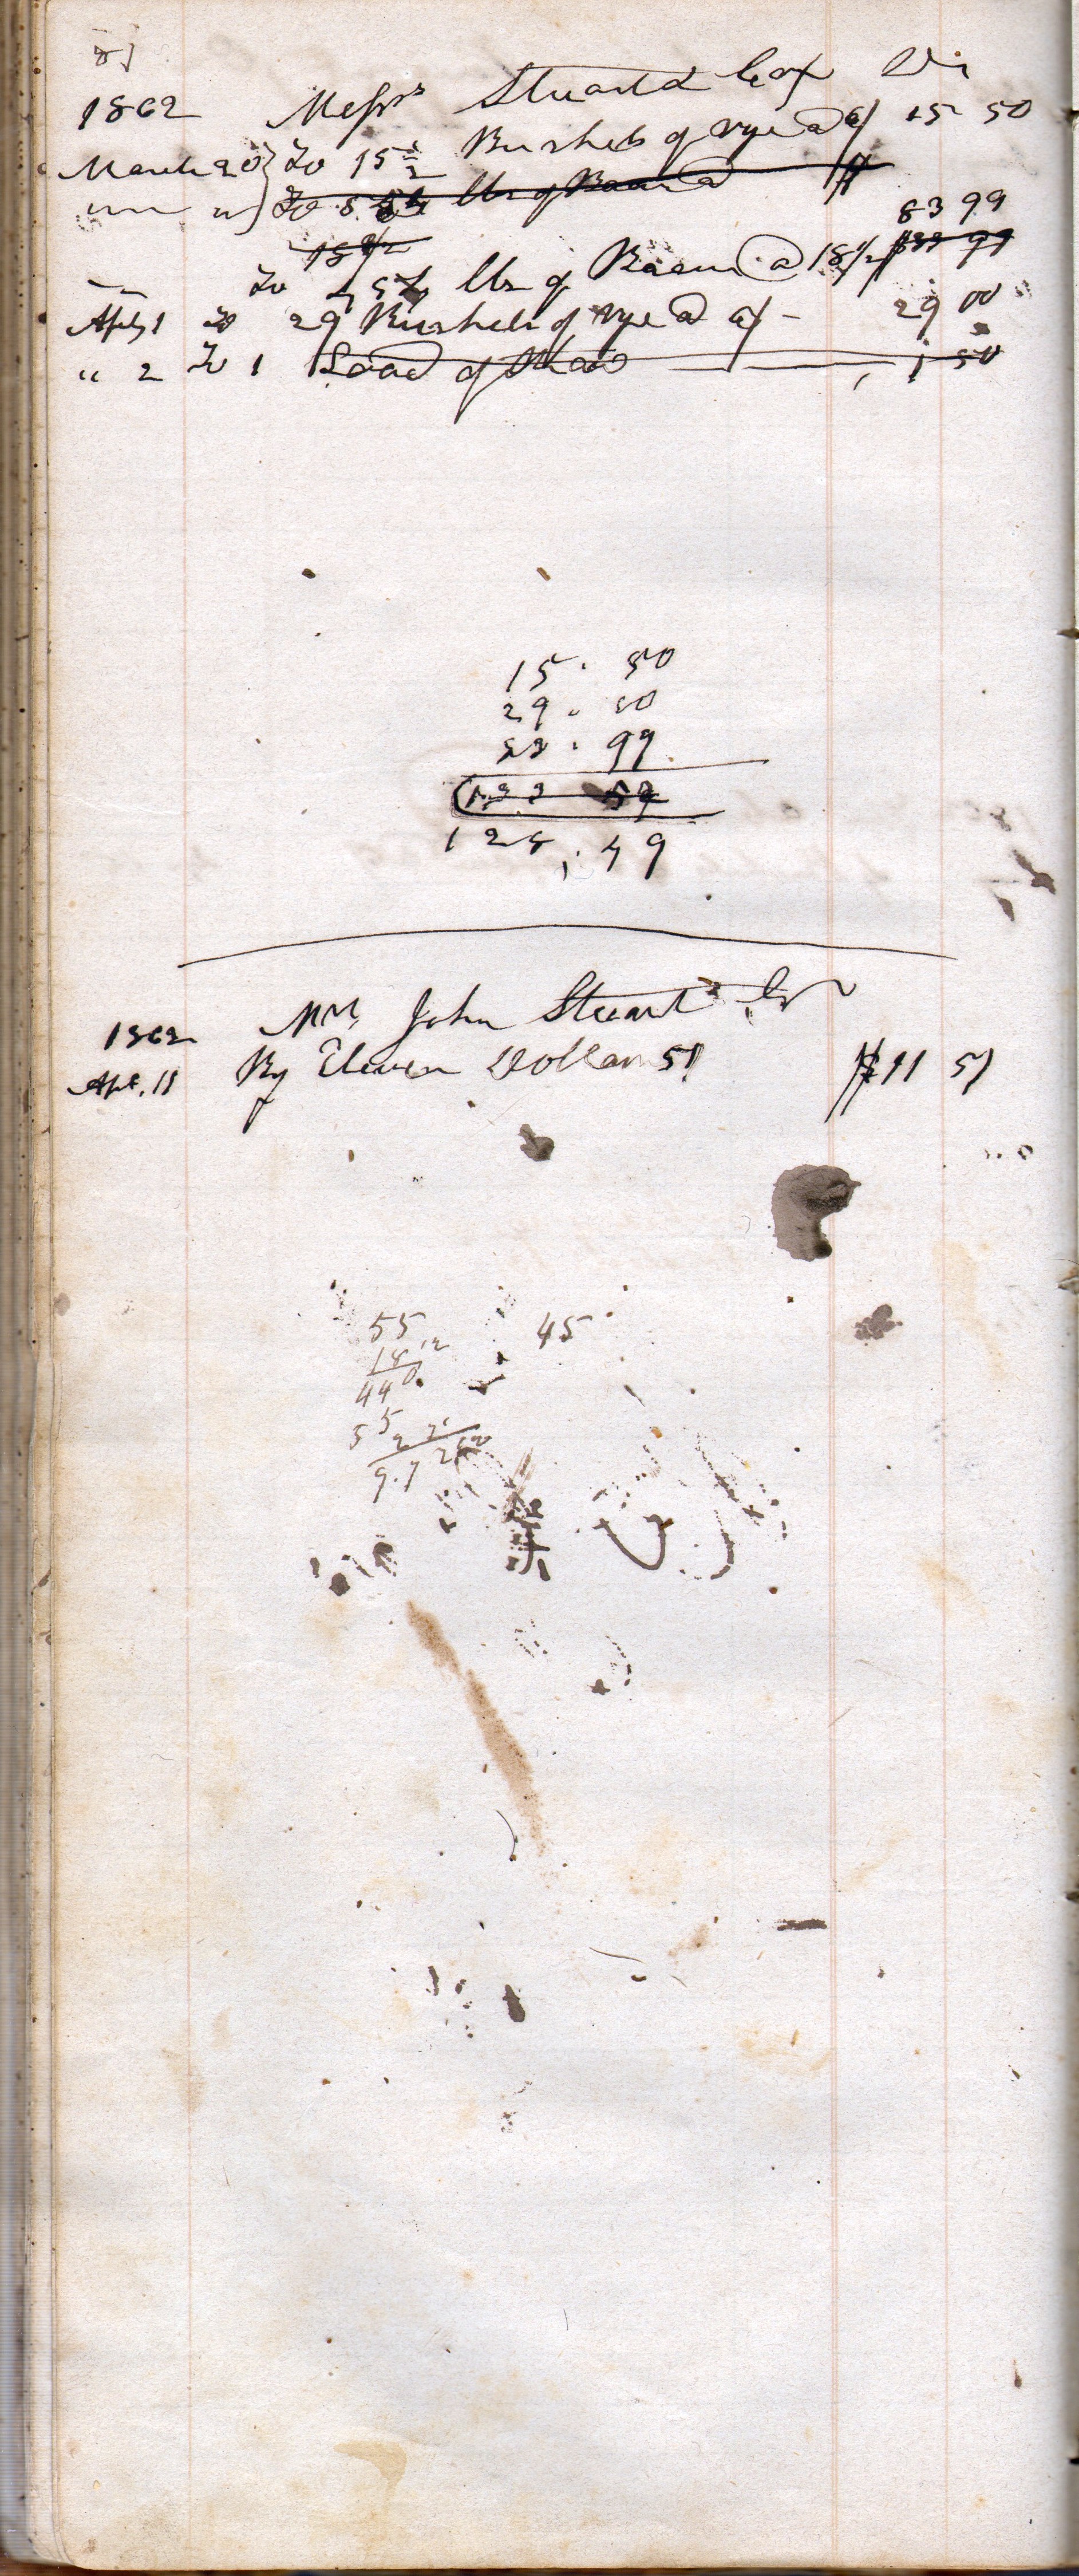 1862 Messrs Stuart & Cox Dr
March 20 To 15 1/2 Bushels of rye @ 6/ 15 50
To lbs of Bacon @ $
18 1/2 83 99
To 454 lbs of Bacon @ 18 1/2 99
Apl, 1 To 29 Bushels of rye @ 6/ - 29 00
" 2 To 1 Load of 1 50
15. 50
29. 00
83. 99
128, 49
1862 Mr. John Stuart Cr
Apl. 11 By Eleven Dollars 51 $11 51
55 45
18 1/2
440
55